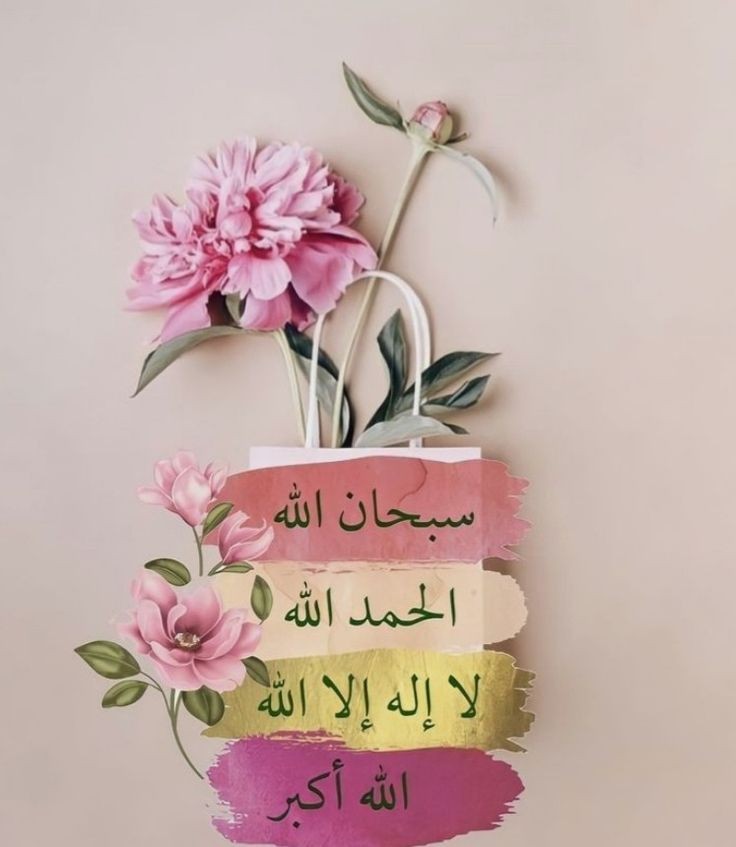 سبحان الله
الحمد الله
لا إله إلا الله
الله أكبر